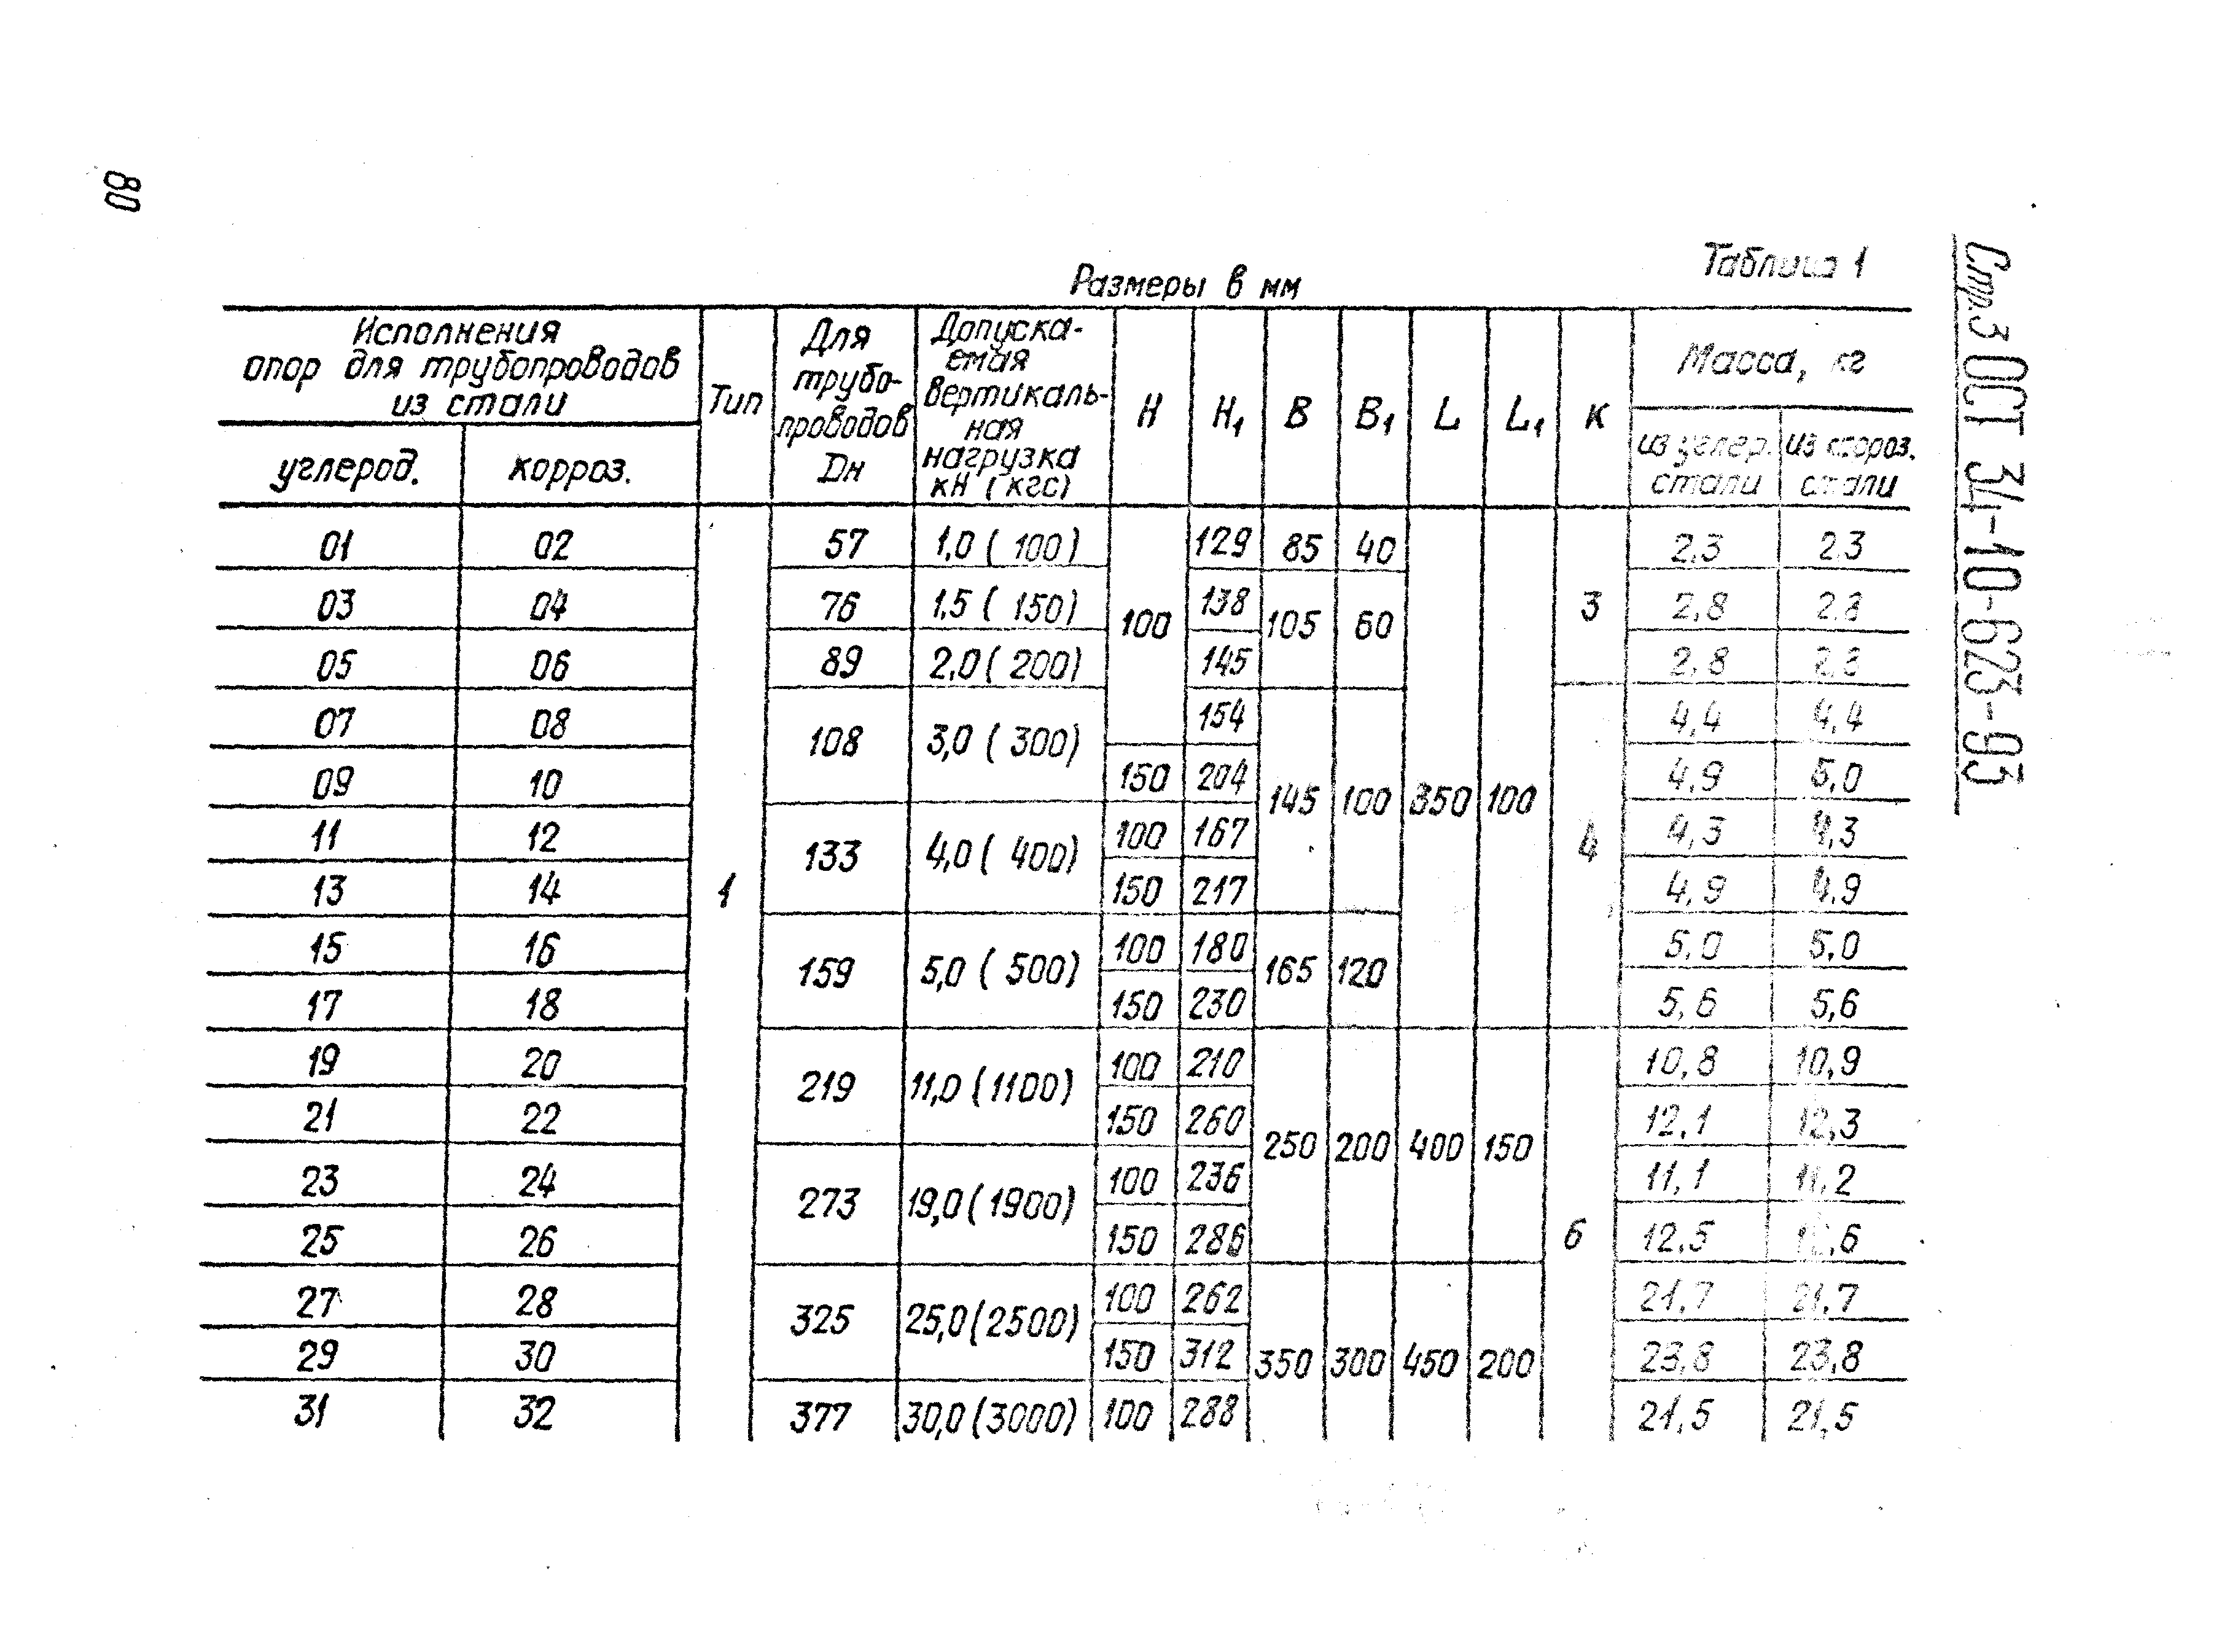 80
Стр.3 ОСТ 34-10-623-93
Таблица 1
Размеры в мм
Исполнения опор для трубопроводов из стали | Тип | Для трубо-проводов Dн | Допуска-емая вертикаль-ная нагрузка кН (кгс) | H | H₁ | B | B₁ | L | L₁ | K | Масса, кг
углерод. | корроз. | из углер. стали | из корроз. стали
01 02 1 57 1,0 (100) 100 129 85 40 350 100 3 2,3 2,3
03 04 76 1,5 (150) 138 105 60 2,8 2,8
05 06 89 2,0 (200) 145 2,8 2,8
07 08 108 3,0 (300) 154 145 100 4 4,4 4,4
09 10 150 204 4,9 5,0
11 12 133 4,0 (400) 100 167 4,3 4,3
13 14 150 217 4,9 4,9
15 16 159 5,0 (500) 100 180 165 120 5,0 5,0
17 18 150 230 5,6 5,6
19 20 219 11,0 (1100) 100 210 250 200 400 150 6 10,8 10,9
21 22 150 260 12,1 12,3
23 24 273 19,0 (1900) 100 236 11,1 11,2
25 26 150 286 12,5 12,6
27 28 325 25,0 (2500) 100 262 350 300 450 200 21,7 21,7
29 30 150 312 23,8 23,8
31 32 377 30,0 (3000) 100 288 21,5 21,5